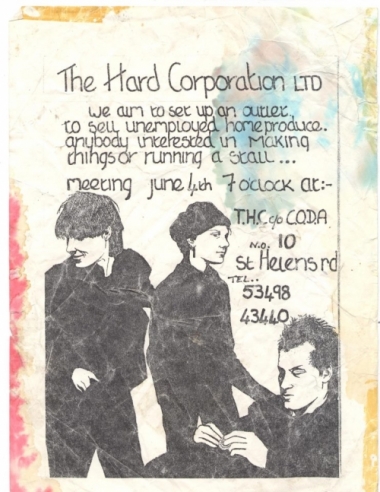 The Hard Corporation LTD
we aim to set up an outlet,
to sell unemployed home produce.
anybody interested in making
things or running a stall ...
meeting june 4th 7 oclock at:-
T.H.C c/o C.O.D.A
N.O. 10
st Helens rd
TEL..
53498
43440